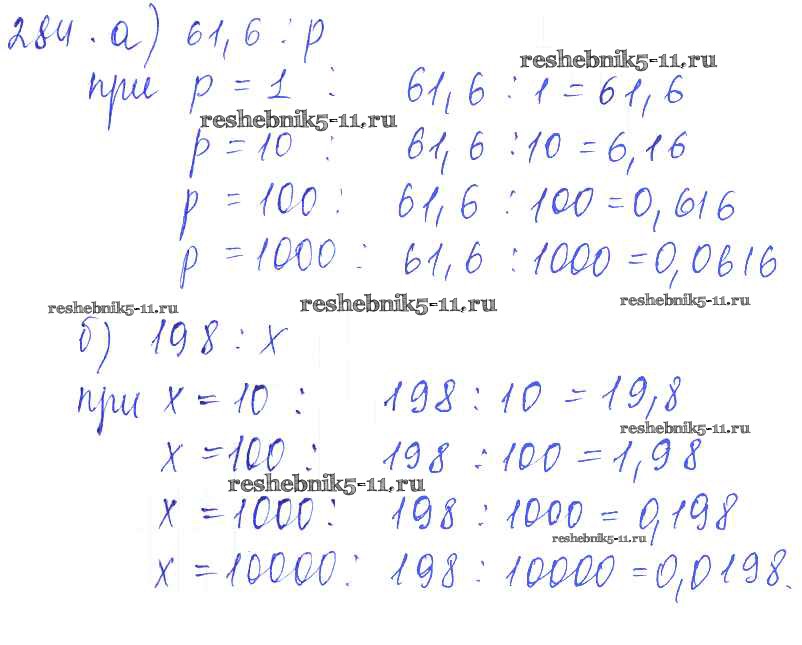 284. а) 61,6 : р
reshebnik5-11.ru
при р = 1 : 61,6 : 1 = 61,6
reshebnik5-11.ru
р = 10 : 61,6 : 10 = 6,16
р = 100 : 61,6 : 100 = 0,616
р = 1000 : 61,6 : 1000 = 0,0616
reshebnik5-11.ru reshebnik5-11.ru reshebnik5-11.ru
б) 198 : х
при х = 10 : 198 : 10 = 19,8
reshebnik5-11.ru
х = 100 : 198 : 100 = 1,98
reshebnik5-11.ru
х = 1000 : 198 : 1000 = 0,198
reshebnik5-11.ru
х = 10000 : 198 : 10000 = 0,0198.